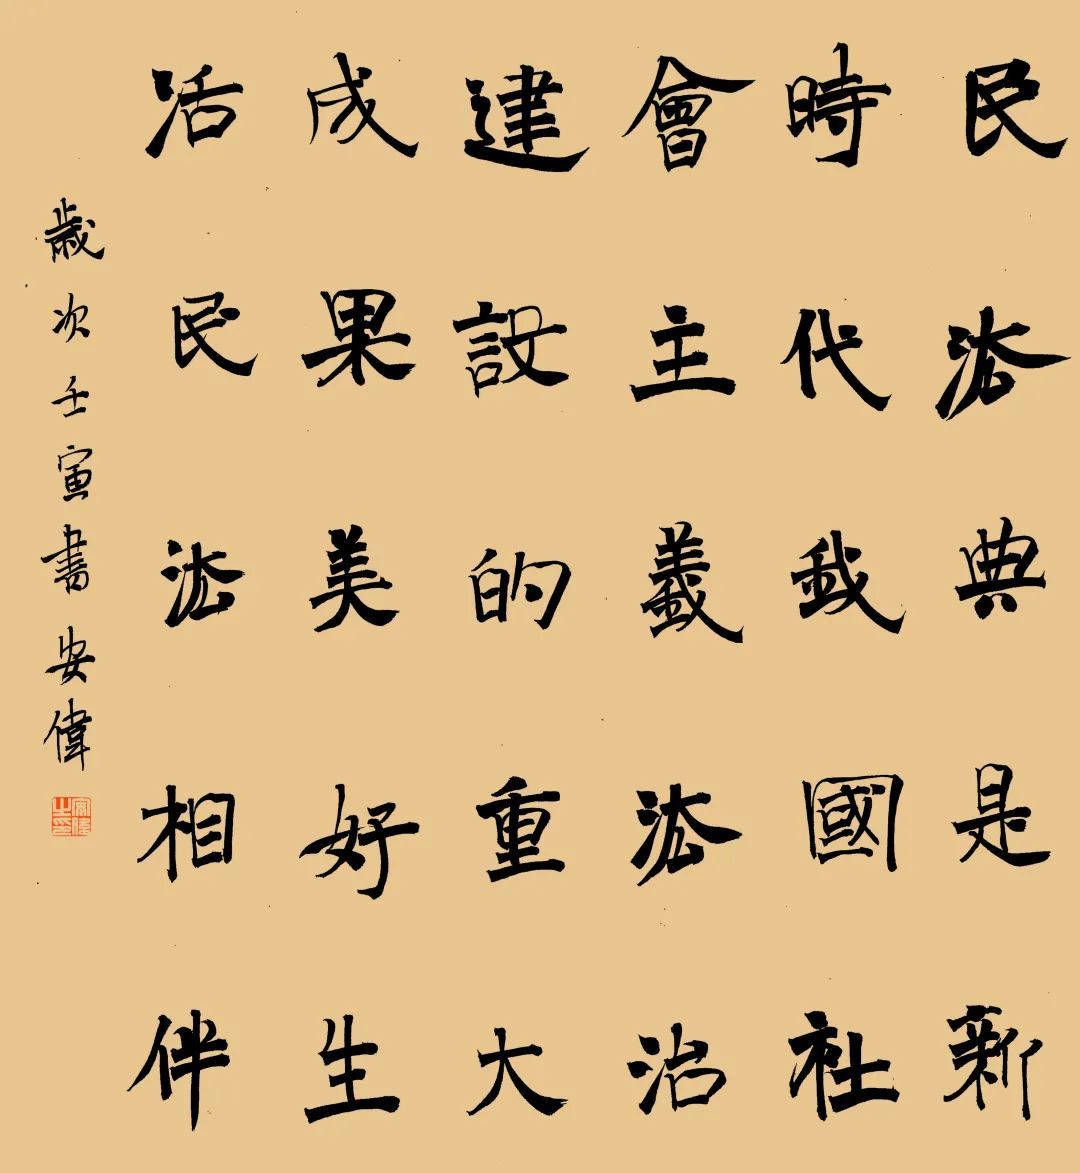 民法典是新
時代我國社
會主義法治
建設的重大
成果美好生
活民法相伴
歲次壬寅書安偉